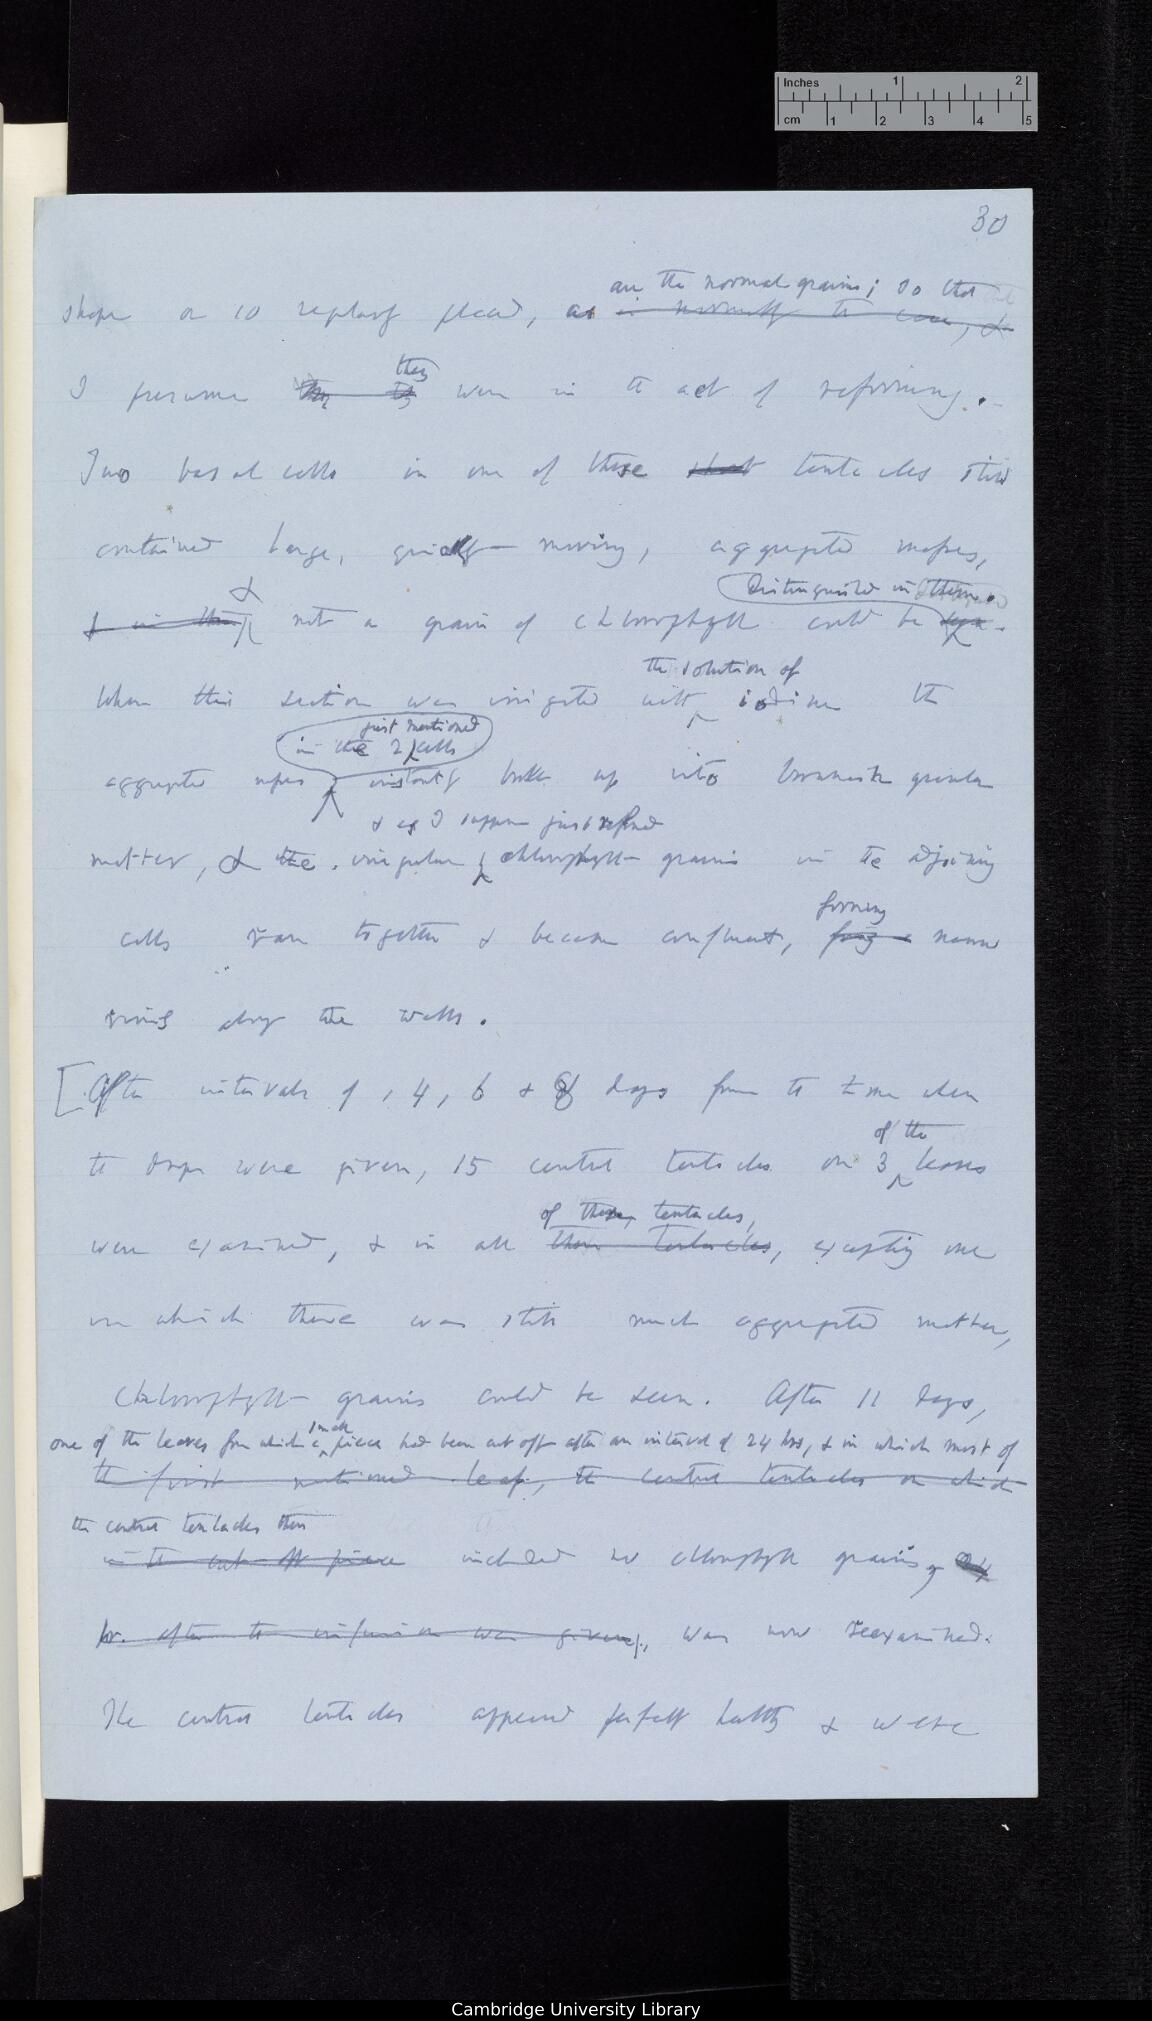 Inches 1 2
cm 1 2 3 4 5
30
are the normal grains; so that
shape or so regularly placed, as is normally the case, &
they
I presume they were in the act of reforming.
Two basal cells in one of these short tentacles still
contained large, quickly moving, aggregated masses,
& distinguished in them.
& in them not a grain of chlorophyll could be seen.
the solution of
When this section was irrigated with iodine the
just mentioned
in the 2 cells
aggregated masses instantly broke up into brownish granular
& as I suppose just reformed
matter, & the irregular chlorophyll-grains in the adjoining
forming
cells ran together & became confluent, narrow
rims along the walls.
[After intervals of, 4, 6 & 8 days from the time when
of the
the drops were given, 15 central tentacles on 3 leaves
of these tentacles,
were examined, & in all these tentacles, excepting one
in which there was still much aggregated matter,
chlorophyll-grains could be seen. After 11 days,
small
one of the leaves from which a piece had been cut off after an interval of 24 hrs, & in which most of
the first mentioned leaf, the central tentacles on which
the central tentacles then
in the cut-off piece included no chlorophyll grains, 24
hr. after the infusion was given, was now reexamined.
The central tentacles appeared perfectly healthy & were
Cambridge University Library